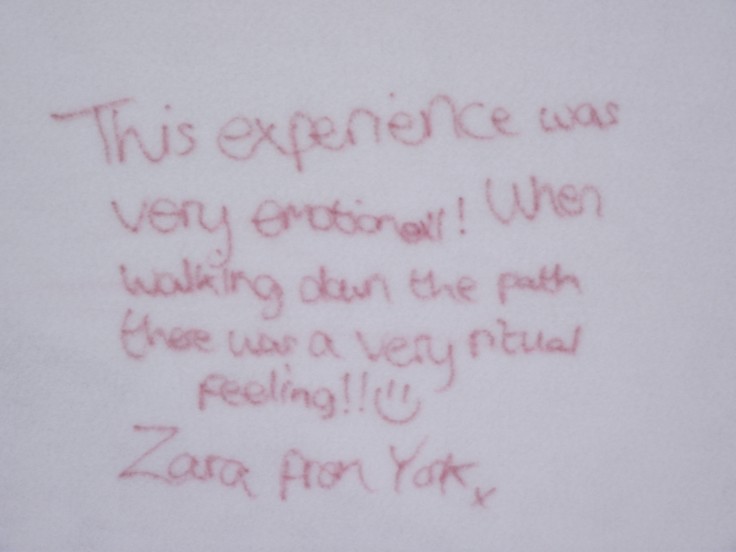 This experience was
very emotional! When
walking down the path
there was a very ritual
feeling!!
Zara from York x